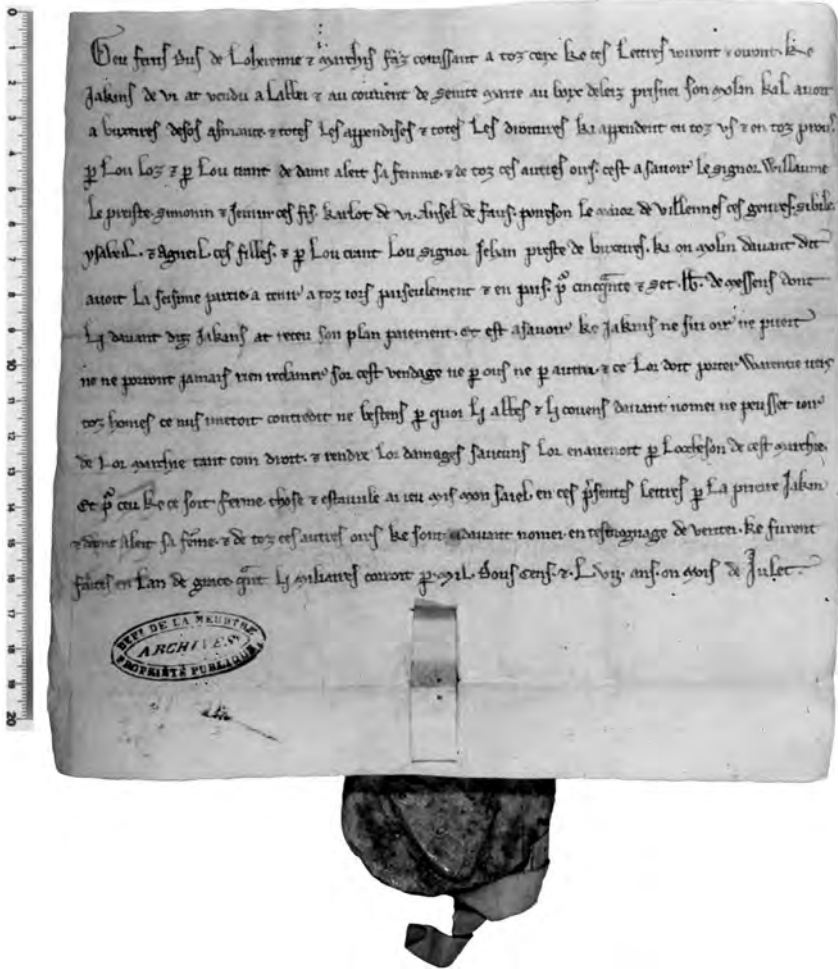 Geu ferris dus de Loherenne ⁊ marchis faz conissant a toz ceax ke ces Lettres uiront ⁊ oront. ke
Jakins de vi at vendu a Labbei ⁊ au couuent de seinte marie au boix deleiz prisnei son molin kal auoit
a buxeires desos asmance. ⁊ totes Les appendises ⁊ totes Les droitures ki appendent en toz vs ⁊ en toz prous.
p̲ Lou Loz ⁊ p̲ Lou crant de dame aleit sa femme. ⁊ de toz ces autres oirs. cest a sauoir le signor Willaume
Le preiste. simonin ⁊ ces fis. karlot de vi. Ansel de faus. le maior de villennes ces genres. sibile.
ysabeil. ⁊ Agneil. ces filles. ⁊ p̲ Lou crant Lou signor Jehan preste de buxeires. ki on molin dauant dit
auoit La sesime partie. a tenir a toz iors paiseulement ⁊ en pais. p̊ cincq̃nte ⁊ set. lb̃. de messens dont
Li dauant diz Jakins at receu son plan paiement. Et est asauoir ke Jakins ne sui oir ne pueent
ne ne porront jamais rien reclamer sor cest vendage ne p̲ ous ne p̲ autrui. ⁊ ce Lor doit porter Warentie ueis
toz homes ce nus imetoit contredit ne bestens p̲ quoi Li abbes ⁊ Li couens dauant nomei ne peusset ioir
de Lor marchie tant com droit. ⁊ rendre Lor damages saucuns Lor enauenoit p̲ Locheson de cest marchie.
Et p̊ ceu ke ce soit ferme chose ⁊ estauule ai ieu mis mon saiel. en ces p̃sentes Lettres p̲ La priere Jakin
⁊ dame Aleit sa fem̃e. ⁊ de toz ces autres oirs ke sont dauant nomei. en tesmognage de veritei. ke furent
faites en Lan de grace. q̃nt Li miliaires corroit p̲. Mil. Dous cens. ⁊. L vij. ans. on mois de Julet.
DEPT. DE LA MEURTHE
ARCHIVES
PROPRIÉTÉ PUBLIQUE
0
1
2
3
4
5
6
7
8
9
10
11
12
13
14
15
16
17
18
19
20